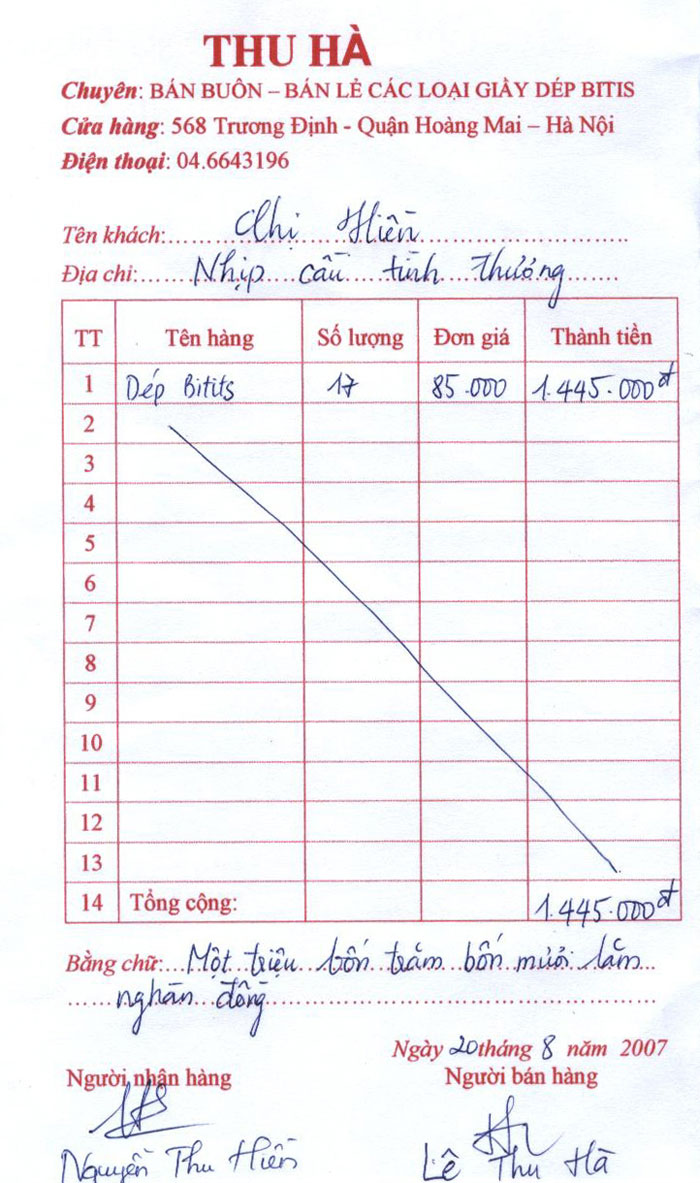 THU HÀ
Chuyên: BÁN BUÔN – BÁN LẺ CÁC LOẠI GIẦY DÉP BITIS
Cửa hàng: 568 Trương Định - Quận Hoàng Mai – Hà Nội
Điện thoại: 04.6643196
Tên khách: Chị Hiền
Địa chỉ: Nhịp cầu tình thương
TT Tên hàng Số lượng Đơn giá Thành tiền
1 Dép Bitits 17 85.000 1.445.000đ
2
3
4
5
6
7
8
9
10
11
12
13
14 Tổng cộng: 1.445.000đ
Bằng chữ: Một triệu bốn trăm bốn mươi lăm
nghàn đồng
Ngày 20 tháng 8 năm 2007
Người nhận hàng Người bán hàng
Nguyễn Thu Hiền Lê Thu Hà